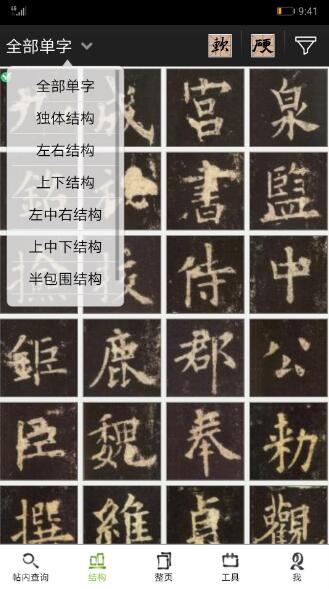 9:41
全部单字
軟 硬
全部单字
独体结构
左右结构
上下结构
左中右结构
上中下结构
半包围结构
九 成 宮 泉
銘 書 監
撿 校 侍 中
鉅 鹿 郡 公
臣 魏 奉 勅
撰 維 貞 觀
帖内查询 结构 整页 工具 我